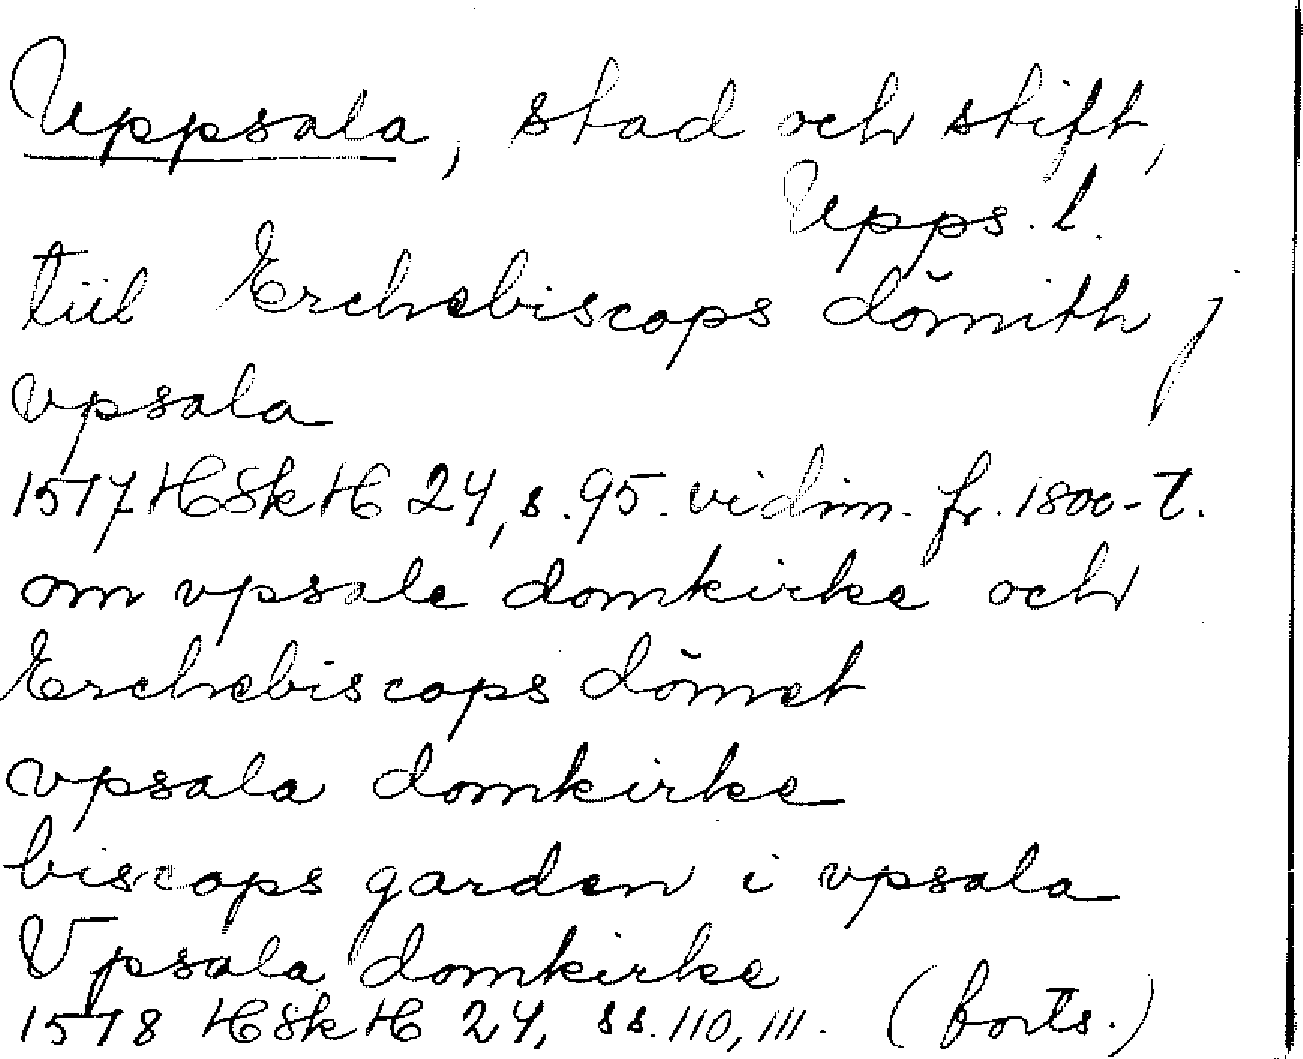 Uppsala, stad och stift,
Upps. l.
tiil Erchebiscops dömith j
vpsala
1577 HSkH 24, s. 95. vidim. fr. 1800-t.
om vpsale domkirke och
Erchebiscops dömet
vpsala domkirke
biscops garden i vpsala
Vpsala domkirke
1578 HSkH 24, ss. 110, 111. (forts.)